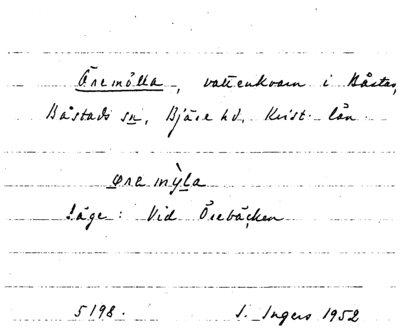 Öremölla, vattenkvarn i Båstad,
Båstads sn, Bjäre hd, Krist. län.
øre mỳla
Läge: Vid Örebäcken
5198. I. Ingers 1952